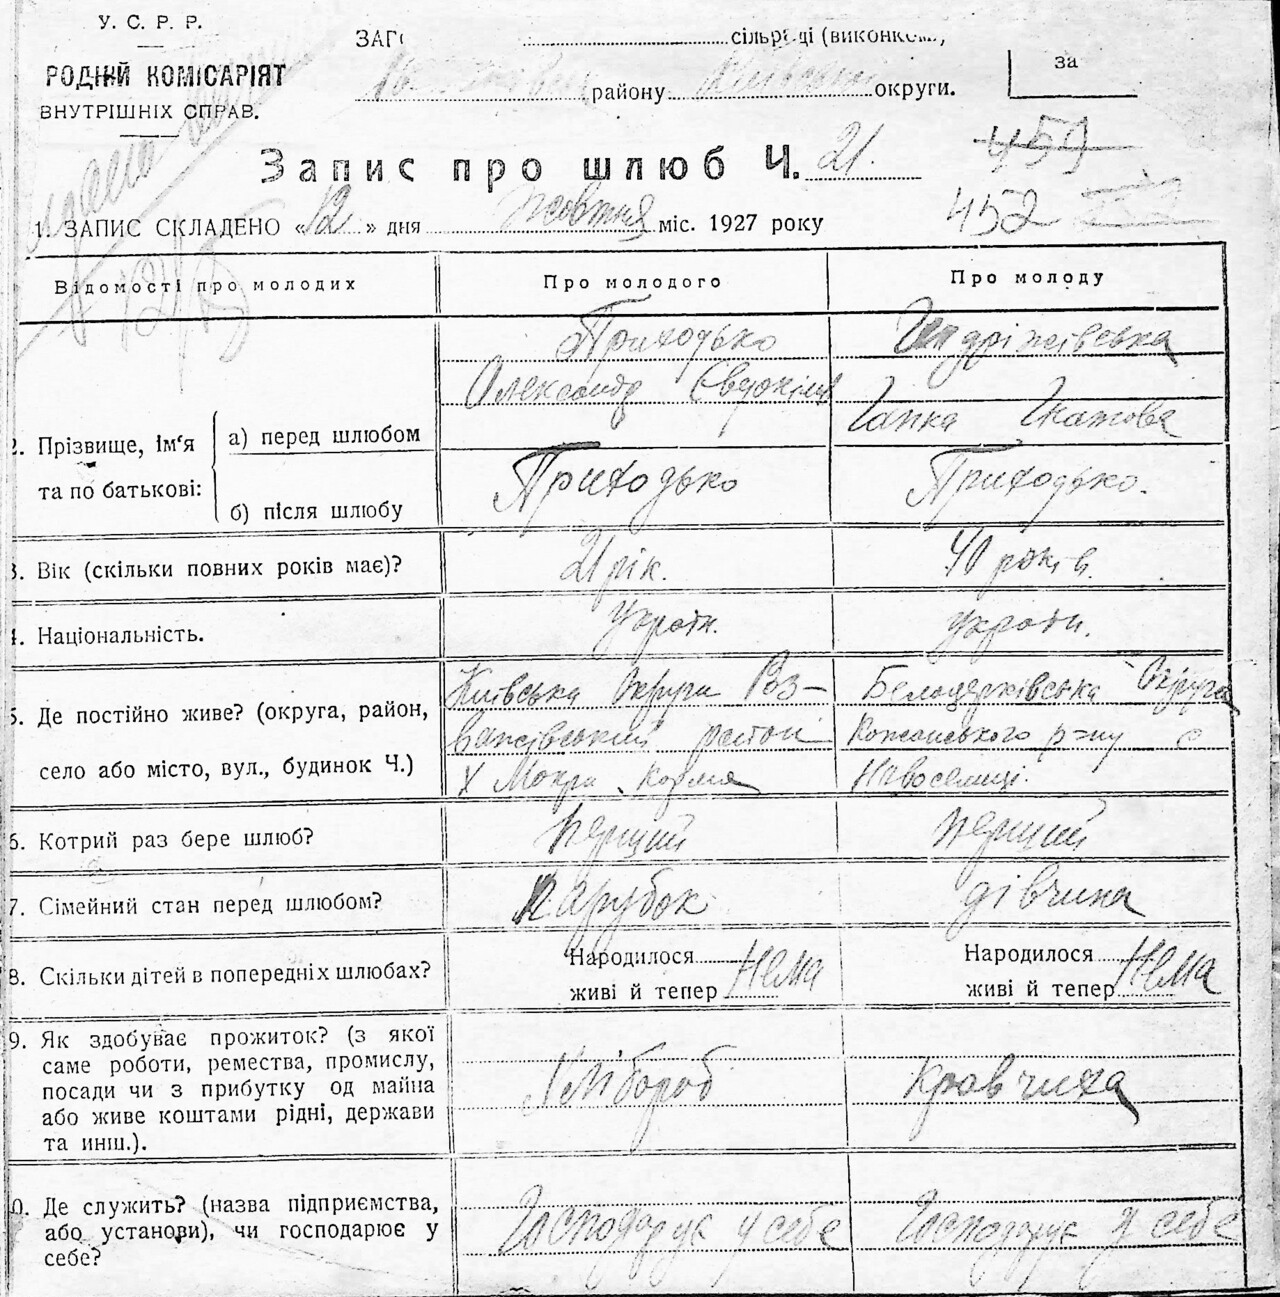 У. С. Р. Р.
РОДНІЙ КОМІСАРІЯТ
ВНУТРІШНІХ СПРАВ.
ЗАГС сільради (виконком),
району Київської округи.
за
Запис про шлюб Ч. 21.
459
452
1. ЗАПИС СКЛАДЕНО «12» дня жовтня міс. 1927 року
Відомості про молодих
Про молодого
Про молоду
2. Прізвище, Ім'я та по батькові:
а) перед шлюбом
Приходько
Олександр
Гапка
б) після шлюбу
Приходько
Приходько.
3. Вік (скільки повних років має)?
21 рік.
40 років.
4. Національність.
Україн.
україн.
5. Де постійно живе? (округа, район,
село або місто, вул., будинок Ч.)
Київська Округа Роз-
важівський район
Х Мокра Корма
Белоцерківська Округа
Кожанського р-ну с
Новоселиці.
6. Котрий раз бере шлюб?
перший
перший
7. Сімейний стан перед шлюбом?
парубок
дівчина
8. Скільки дітей в попередніх шлюбах?
Народилося
живі й тепер Нема
Народилося
живі й тепер Нема
9. Як здобуває прожиток? (з якої
саме роботи, ремества, промислу,
посади чи з прибутку од майна
або живе коштами рідні, держави
та инш.).
Хлібороб
Кравчиха
10. Де служить? (назва підприємства,
або установи), чи господарює у
себе?
Господарує у себе
Господарує у себе